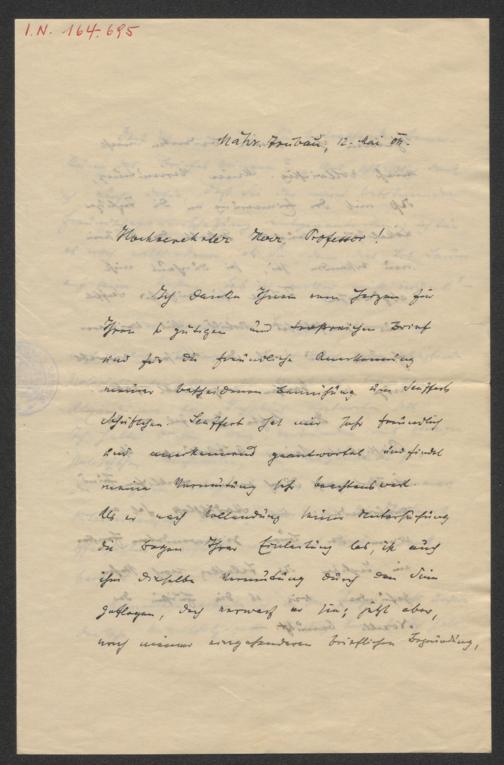 I.N. 164.695
Mähr. Trübau, 12. Mai 04.
Hochverehrter Herr Professor!
Ich danke Ihnen vom Herzen für
Ihren so gütigen und trostreichen Brief
und für die freundliche Anerkennung
meiner bescheidenen Bemühung um Seufferts
Schriftchen. Seuffert hat mir sehr freundlich
und anerkennend geantwortet und findet
meine Vermutung sehr beachtenswert.
Als er nach Vollendung seiner Untersuchung
die Bogen Ihrer Einleitung las, ist auch
ihm dieselbe Vermutung durch den Sinn
geflogen, doch verwarf er sie; jetzt aber,
nach meiner eingehenderen brieflichen Begründung,